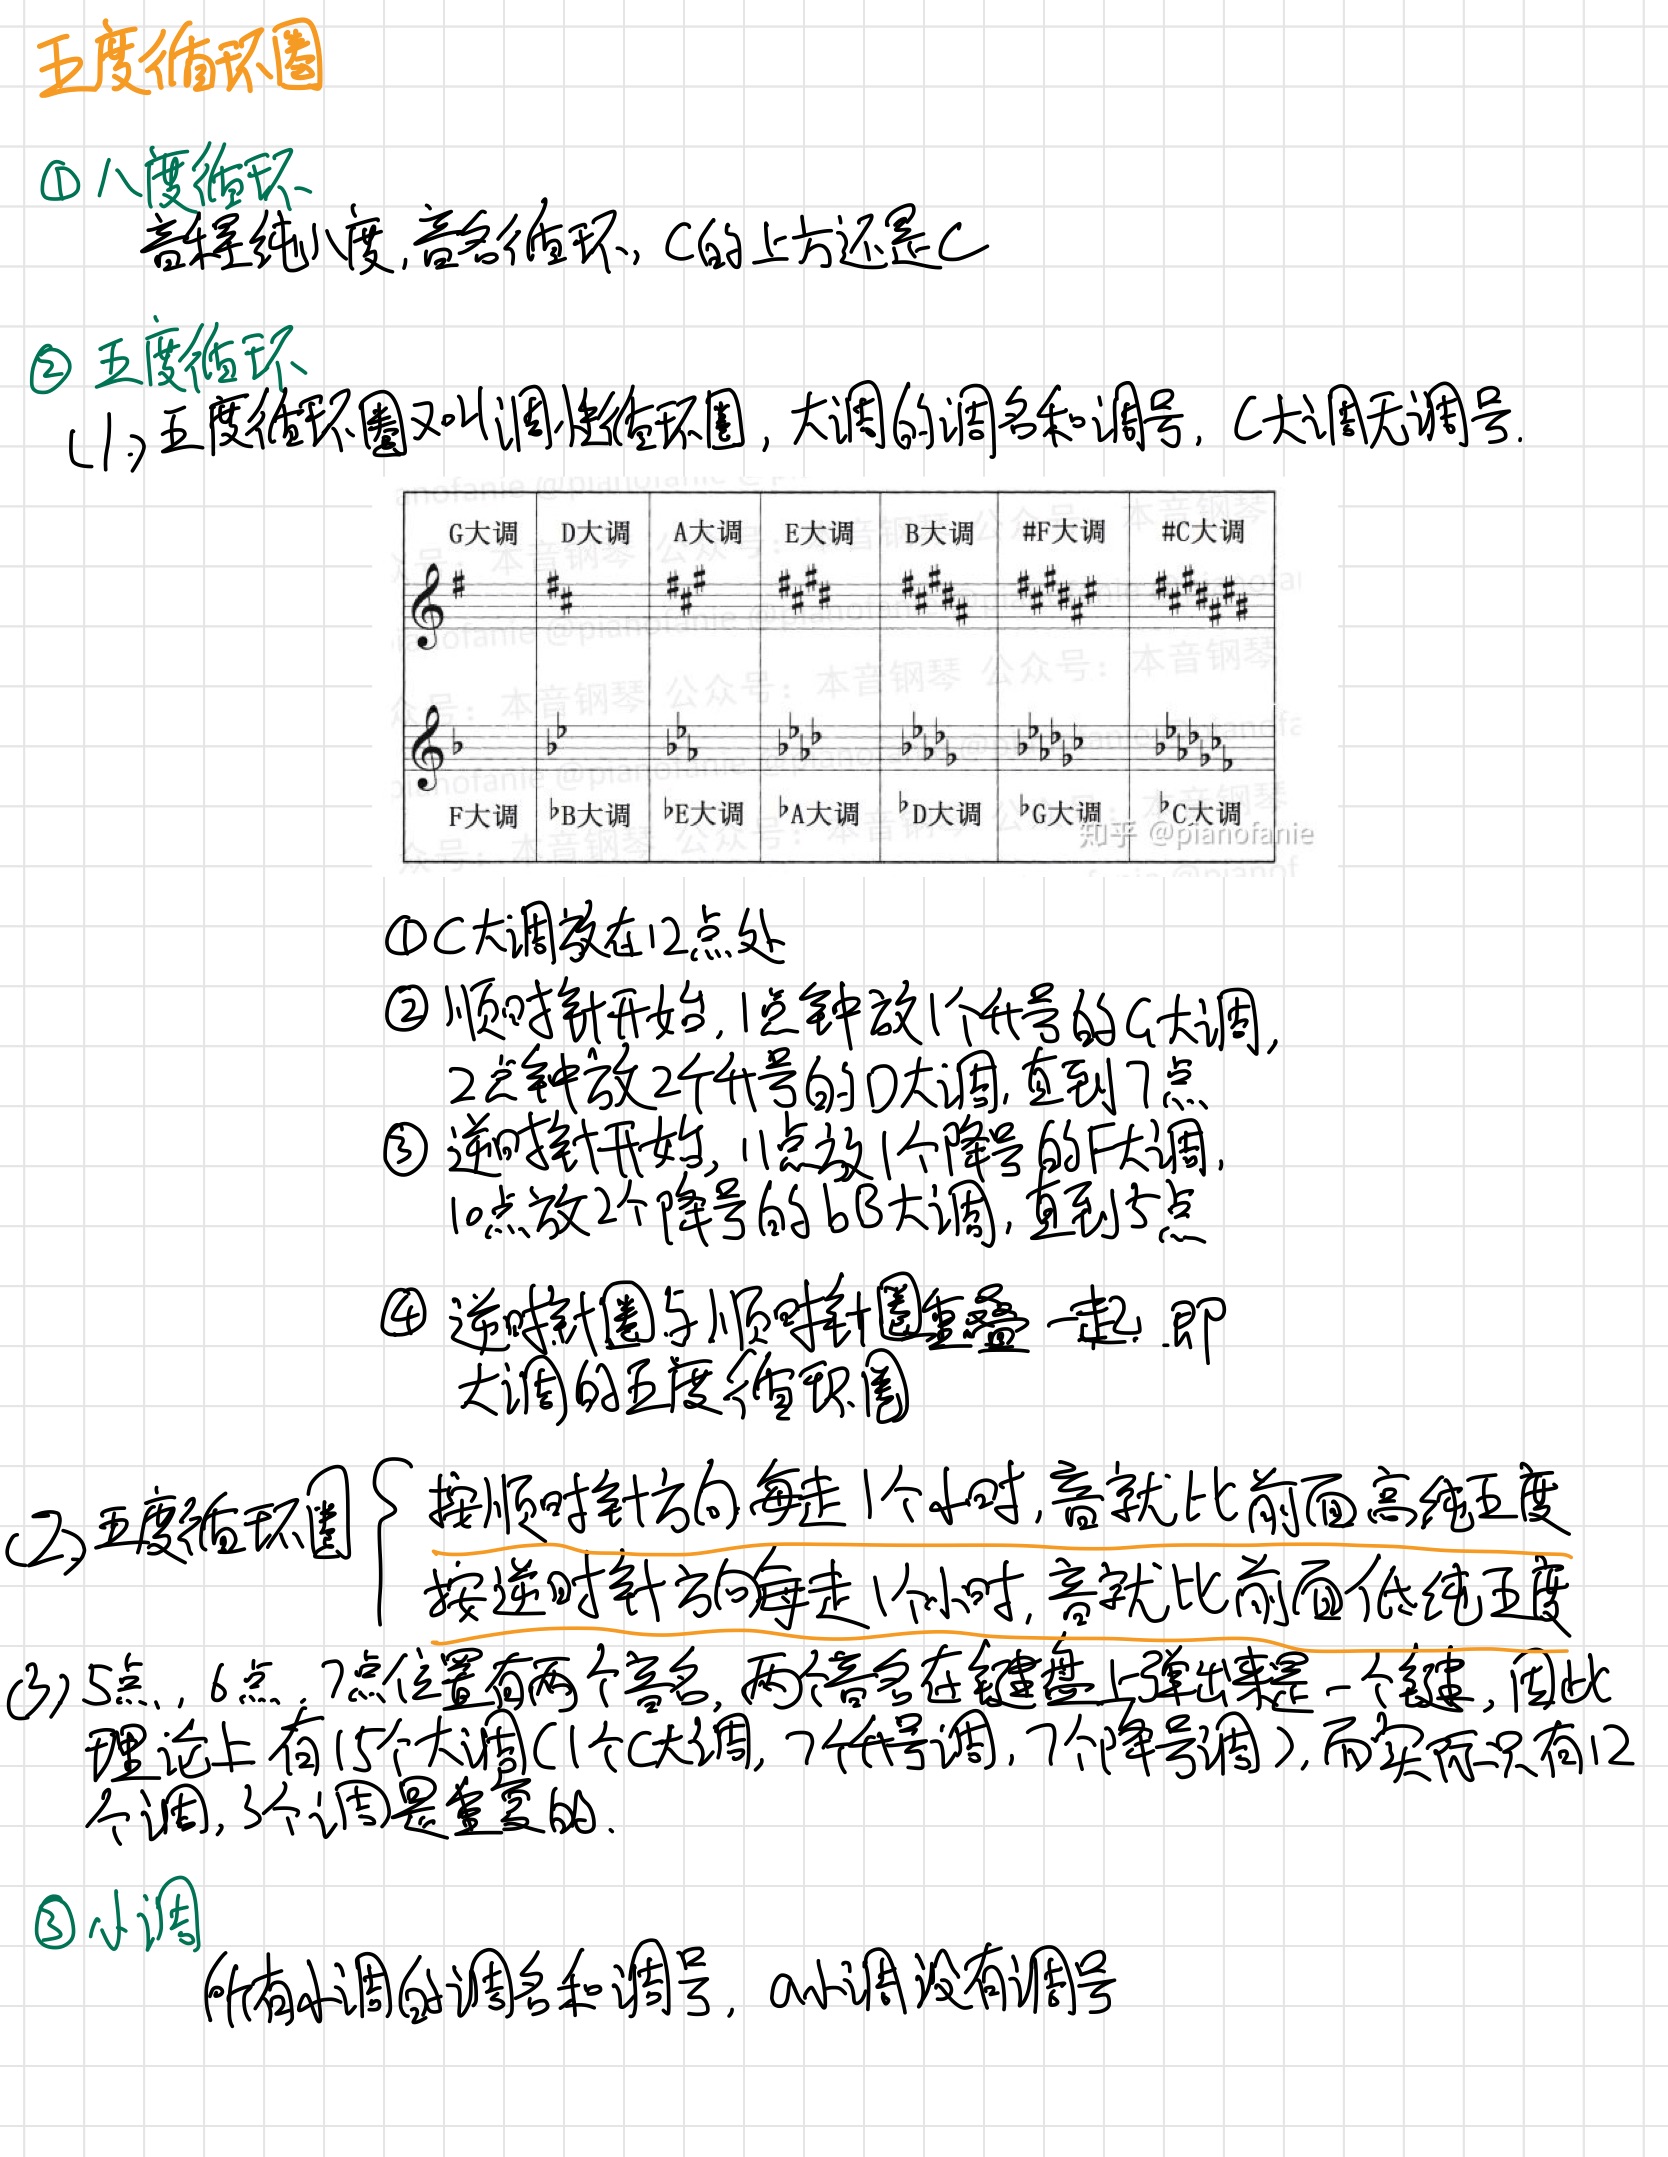 五度循环圈
① 八度循环
音程纯八度,音名循环,C的上方还是C
② 五度循环
(1.) 五度循环圈又叫调性循环圈,大调的调名和调号,C大调无调号.
G大调 D大调 A大调 E大调 B大调 #F大调 #C大调
F大调 ♭B大调 ♭E大调 ♭A大调 ♭D大调 ♭G大调 ♭C大调
知乎 @pianofanie
① C大调放在12点处
② 顺时针开始,1点钟放1个升号的G大调,
2点钟放2个升号的D大调,直到7点
③ 逆时针开始,11点放1个降号的F大调,
10点放2个降号的bB大调,直到5点
④ 逆时针圈与顺时针圈重叠一起.即
大调的五度循环圈
(2.) 五度循环圈
按顺时针方向每走1个小时,音就比前面高纯五度
按逆时针方向每走1个小时,音就比前面低纯五度
(3) 5点,6点,7点位置有两个音名,两个音名在键盘上弹出来是一个键,因此
理论上有15个大调(1个C大调,7个升号调,7个降号调),而实际只有12
个调,3个调是重复的.
③ 小调
所有小调的调名和调号,a小调没有调号